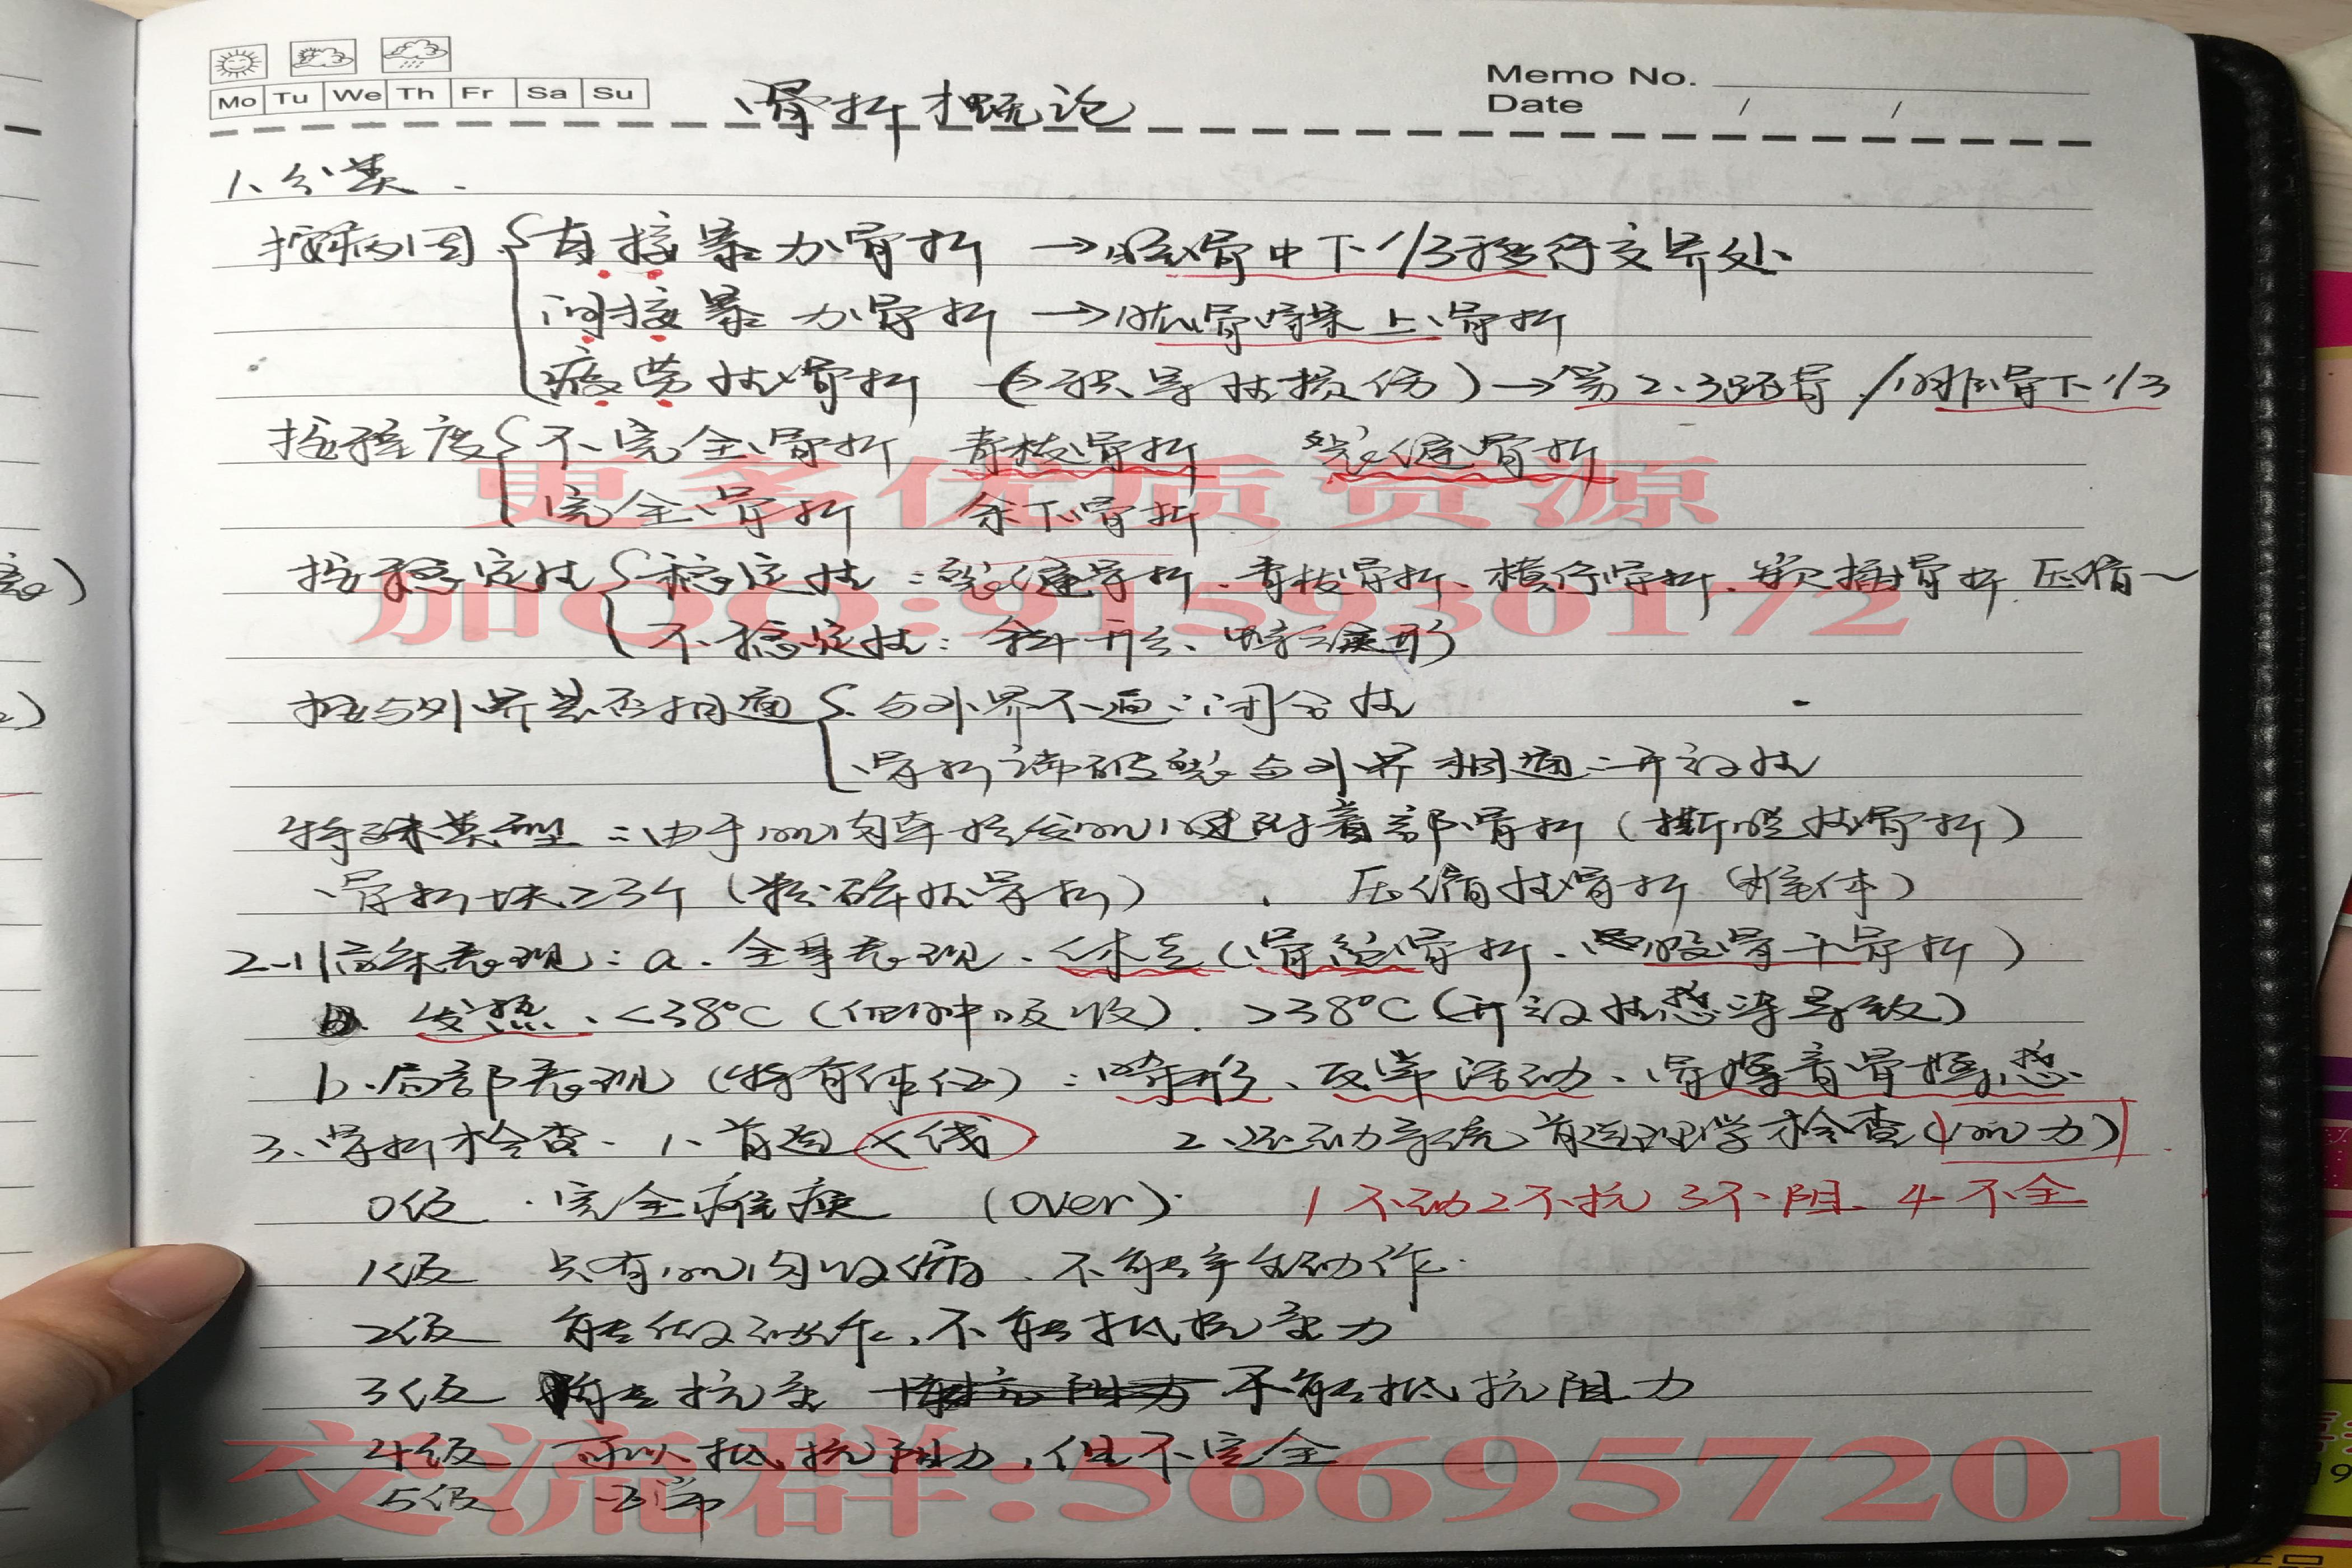 Mo Tu We Th Fr Sa Su
骨折概论
Memo No.
Date / /
1、分类.
按病因 直接暴力骨折 →胫骨中下1/3移行交界处
间接暴力骨折 →肱骨髁上骨折
疲劳性骨折 (积累性损伤)→第2.3跖骨/腓骨下1/3
按程度 不完全骨折 青枝骨折 裂缝骨折
完全骨折 余下骨折
更多优质资源
按稳定性 稳定性:裂缝骨折.青枝骨折、横行骨折、嵌插骨折.压缩~
加QQ:915930172
不稳定性:斜形、螺旋形
按与外界是否相通 与外界不通:闭合性
骨折端破裂与外界相通:开放性
特殊类型:由于肌肉牵拉给肌腱附着部骨折(撕脱性骨折)
骨折块≥3个(粉碎性骨折) 、 压缩性骨折(椎体)
2、临床表现:a.全身表现、休克(骨盆骨折、股骨干骨折)
发热、<38℃(血肿吸收). >38℃(开放性感染导致)
b.局部表现(特有体征):畸形、反常活动、骨擦音骨擦感.
3、骨折检查. 1、首选X线 2、运动系统首选理学检查(肌力)
0级.完全瘫痪 (over). 1不动2不抗3不阻.4不全
1级 只有肌肉收缩、不能产生动作.
2级 能做动作,不能抵抗重力
3级 能抗重 不能抵抗阻力
4级 可以抵抗阻力,但不完全
交流群:566957201
5级 正常